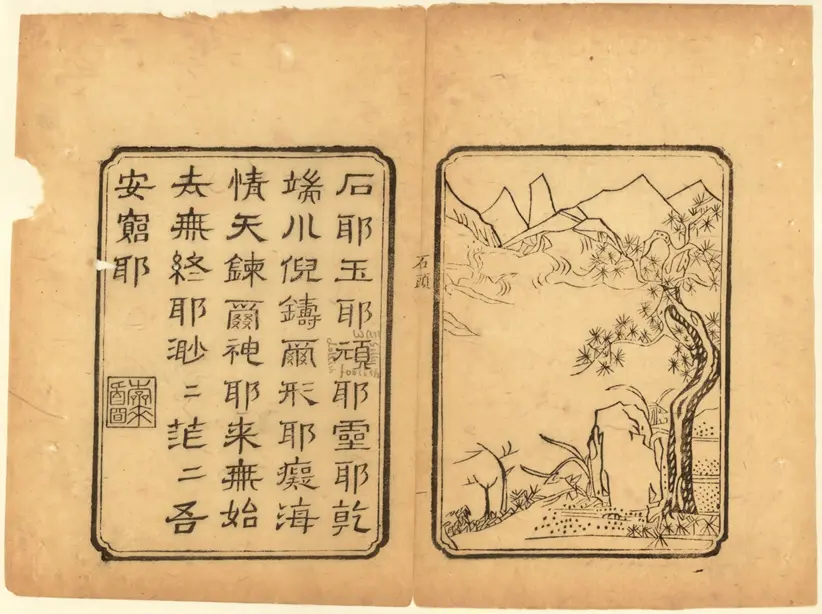 石頭
石耶玉耶頑耶靈耶乾
端巛倪鑄爾形耶癡海
情天鍊爾神耶来無始
去無終耶渺二茫二吾
安窮耶